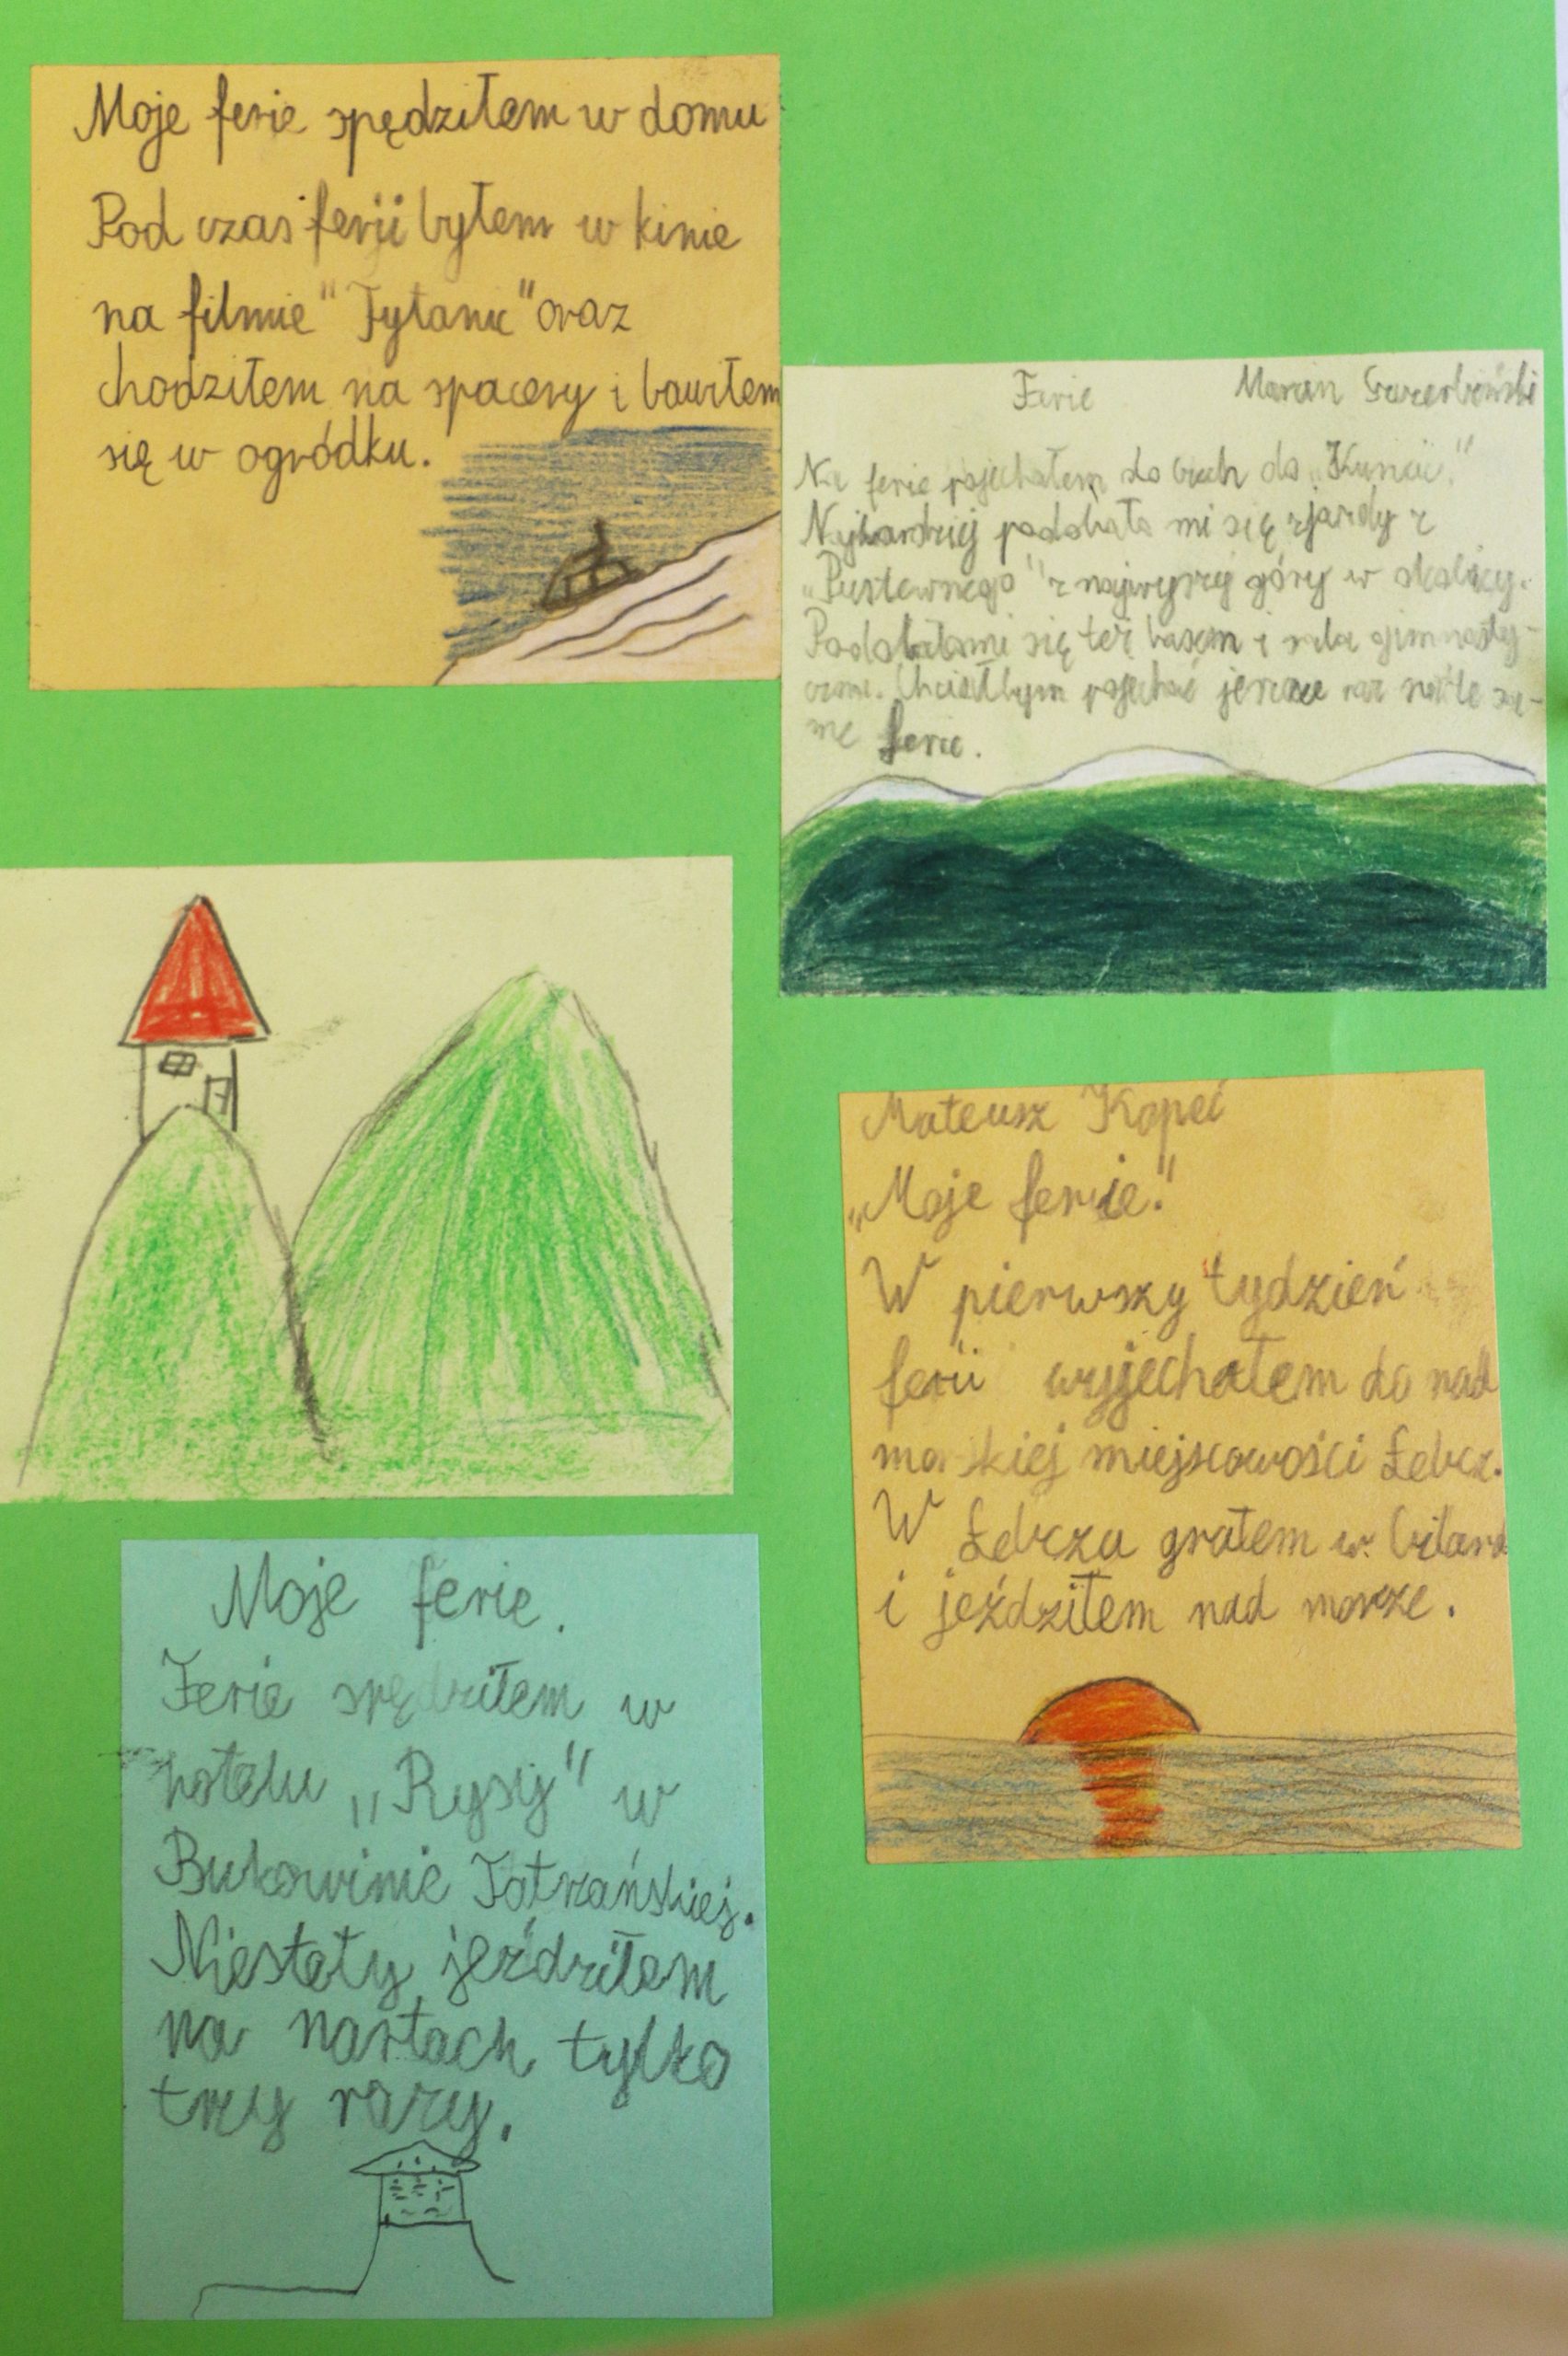 Moje ferie spędziłem w domu
Pod czas ferji byłem w kinie
na filmie "Tytanic" oraz
chodziłem na spacery i bawiłem
się w ogródku.
Ferie Marcin
Na ferie pojechałem do do
Najbardziej podobało mi się zjazdy z
"Pustewnego" z najwyszej góry w okolicy.
Podobałomi się też basem i sala gimnasty-
czna. Chciałbym pojechać jeszcze raz na te sa-
me ferie.
Mateusz Kopeć
„Moje ferie."
W pierwszy tydzień
ferii wyjechałem do nad
morskiej miejscowości Łebcz.
W Łebczu grałem w bilard
i jeździłem nad morze.
Moje ferie.
Ferie spędziłem w
hotelu „Rysy" w
Bukowinie Tatrzańskiej.
Niestety jeździłem
na nartach tylko
trzy razy.